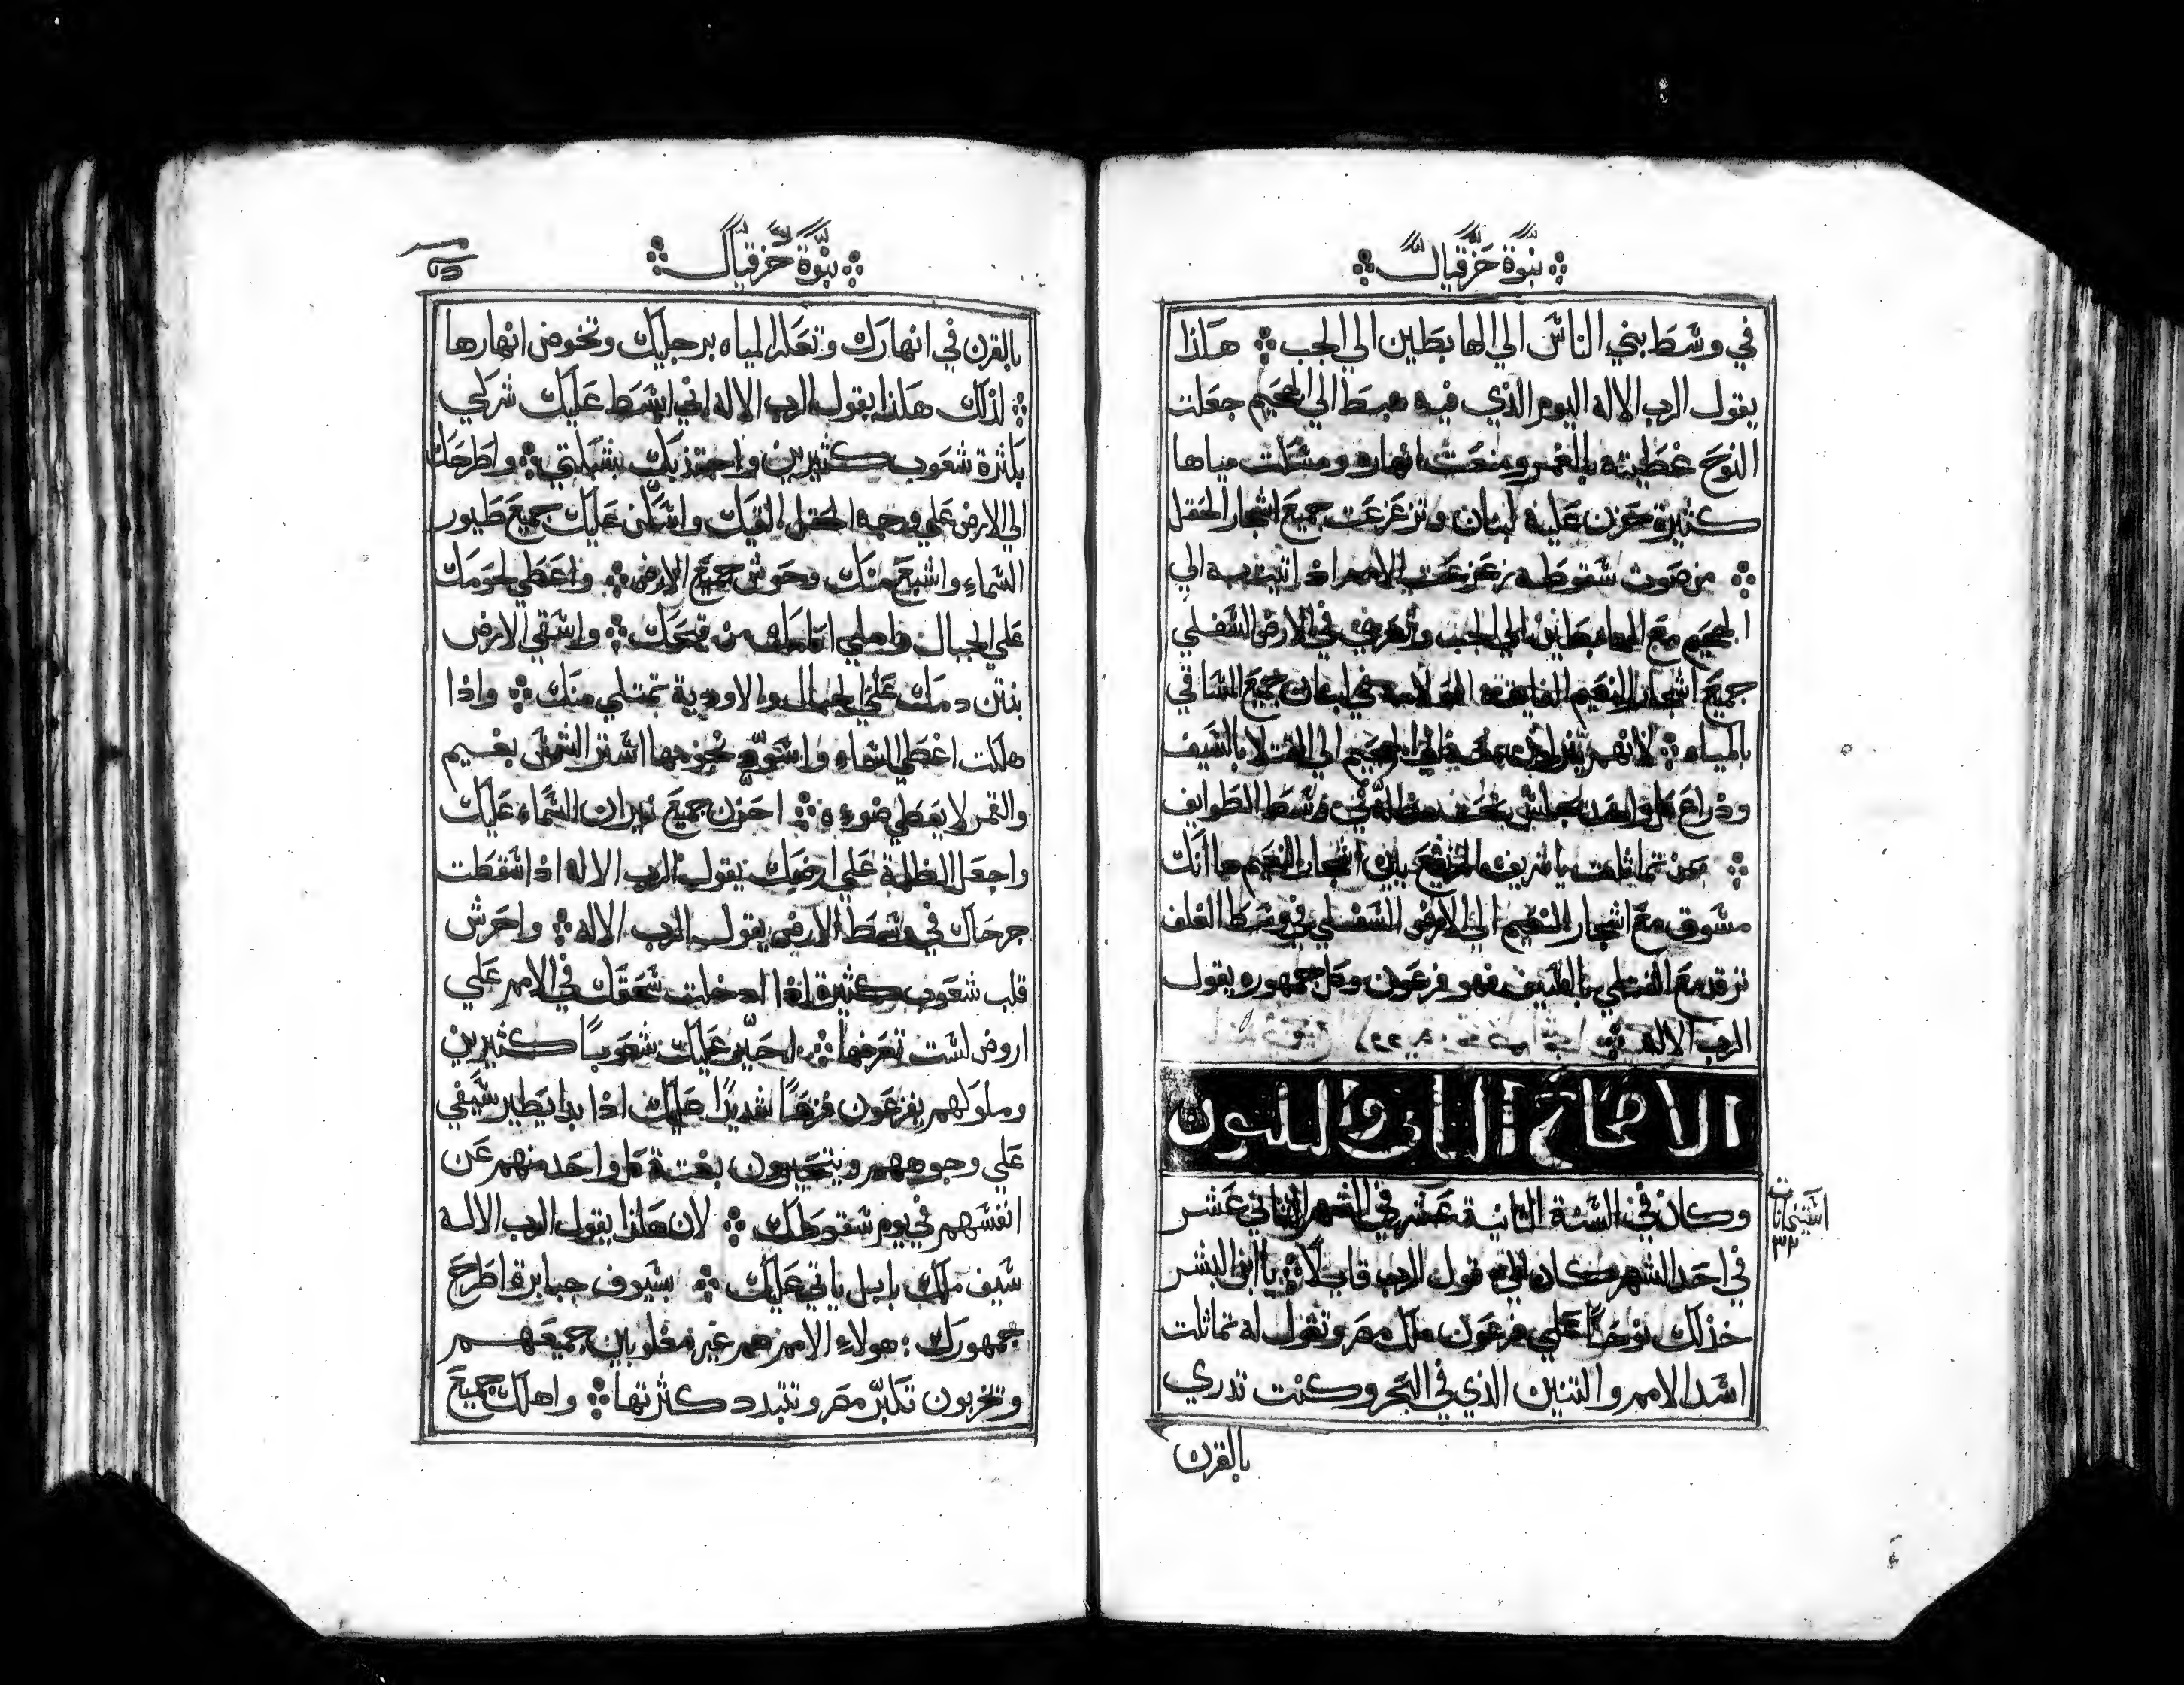 نبوة حزقيال
في وسط بني الناس الي الهابطين الي الجب هكذا
يقول الرب الاله اليوم الذي فيه هبط الي الجحيم جعلت
النوح غطيته بالغمر ومنعت انهاره ومسكت مياها
كثيرة حزن عليه لبنان وتزعزعت جميع اشجار الحقل
من صوت سقوطه زعزعت الامم اذ اتيت به الي
الجحيم مع الهابطين الي الجب وتعزي في الارض السفلي
جميع اشجار النعيم الفايقه في لبنان جميع الساقي
بالمياه لانهم ينزلون معه الي الجحيم الي القتلا بالسيف
وذراع كل واحد يجلس تحت مظلته في وسط الطوايف
بمن تماثلت يا شريف المرتفع بين اشجار النعيم ها انك
مسوق مع اشجار النعيم الي الارض السفلي في وسط الغلف
ترقد مع القتلي بالسيف فهو فرعون وكل جمهوره يقول
الرب الاله
الاصحاح الثاني والثلثون
وكان في السنة الثانية عشر في الشهر الثاني عشر
في احد الشهر كان الي قول الرب قايلا يا ابن البشر
خذ لك نوحًا علي فرعون ملك مصر وتقول له تماثلت
اسد الامم والتنين الذي في البحر وكنت تدري
بالقرن
نبوة حزقيال
بالقرن في انهارك وتعكر المياه برجليك وتخوض انهارها
لذلك هكذا يقول الرب الاله اني ابسط عليك شركي
بكثرة شعوب كثيرين واجتذبك بشبكتي واطرحك
الي الارض علي وجه الحقل القيك واسكن عليك جميع طيور
السماء واشبع منك وحوش جميع الارض واعطي لحومك
علي الجبال واملي اكامك من قيحك واسقي الارض
بنتن دمك علي الجبال والاودية تمتلي منك واذا
هلكت اغطي السماء واسوّد نجومها استر الشمس بغيم
والقمر لا يعطي ضوءه احزن جميع نيران السماء عليك
واجعل الظلمة علي ارضك يقول الرب الاله اذا سقطت
جرحاك في وسط الارض يقول الرب الاله واحرش
قلب شعوب كثيرة اذا ادخلت سحقك في الامم علي
اروض لست تعرفها احيّر عليك شعوبًا كثيرين
وملوكهم يفزعون فزعًا شديدًا عليك اذا بدا يطير سيفي
علي وجوههم ويتحيرون بغتة كل واحد منهم عن
انفسهم في يوم سقوطك لان هكذا يقول الرب الاله
سيف ملك بابل ياتي عليك بسيوف جبابرة اطرح
جمهورك هولاء الامم هم غير مغلوبين جميعهم
وتخربون تكبّر مصر وتتبدد كثرتها واهلك جميع